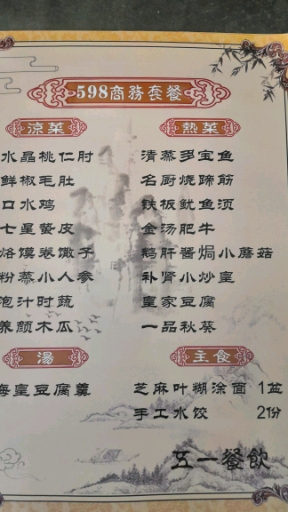 598商務套餐
凉菜
水晶桃仁肘
鲜椒毛肚
口水鸡
七星蜇皮
烙馍卷馓子
粉蒸小人参
泡汁时蔬
养颜木瓜
热菜
清蒸多宝鱼
名厨烧蹄筋
铁板鱿鱼须
金汤肥牛
鹅肝酱焗小蘑菇
补肾小炒皇
皇家豆腐
一品秋葵
湯
海皇豆腐羹
主食
芝麻叶糊涂面 1盆
手工水饺 2份
五一餐飲